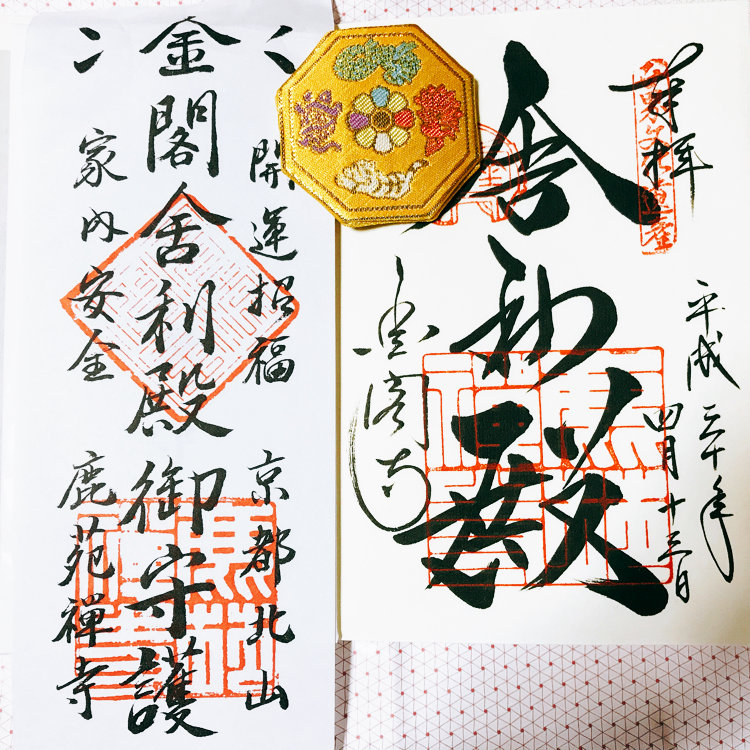 奉拝
平成三十年
四月十三日
舎利殿
金閣寺
開運招福
京都北山
金閣舎利殿
御守護
家内安全
鹿苑禪寺